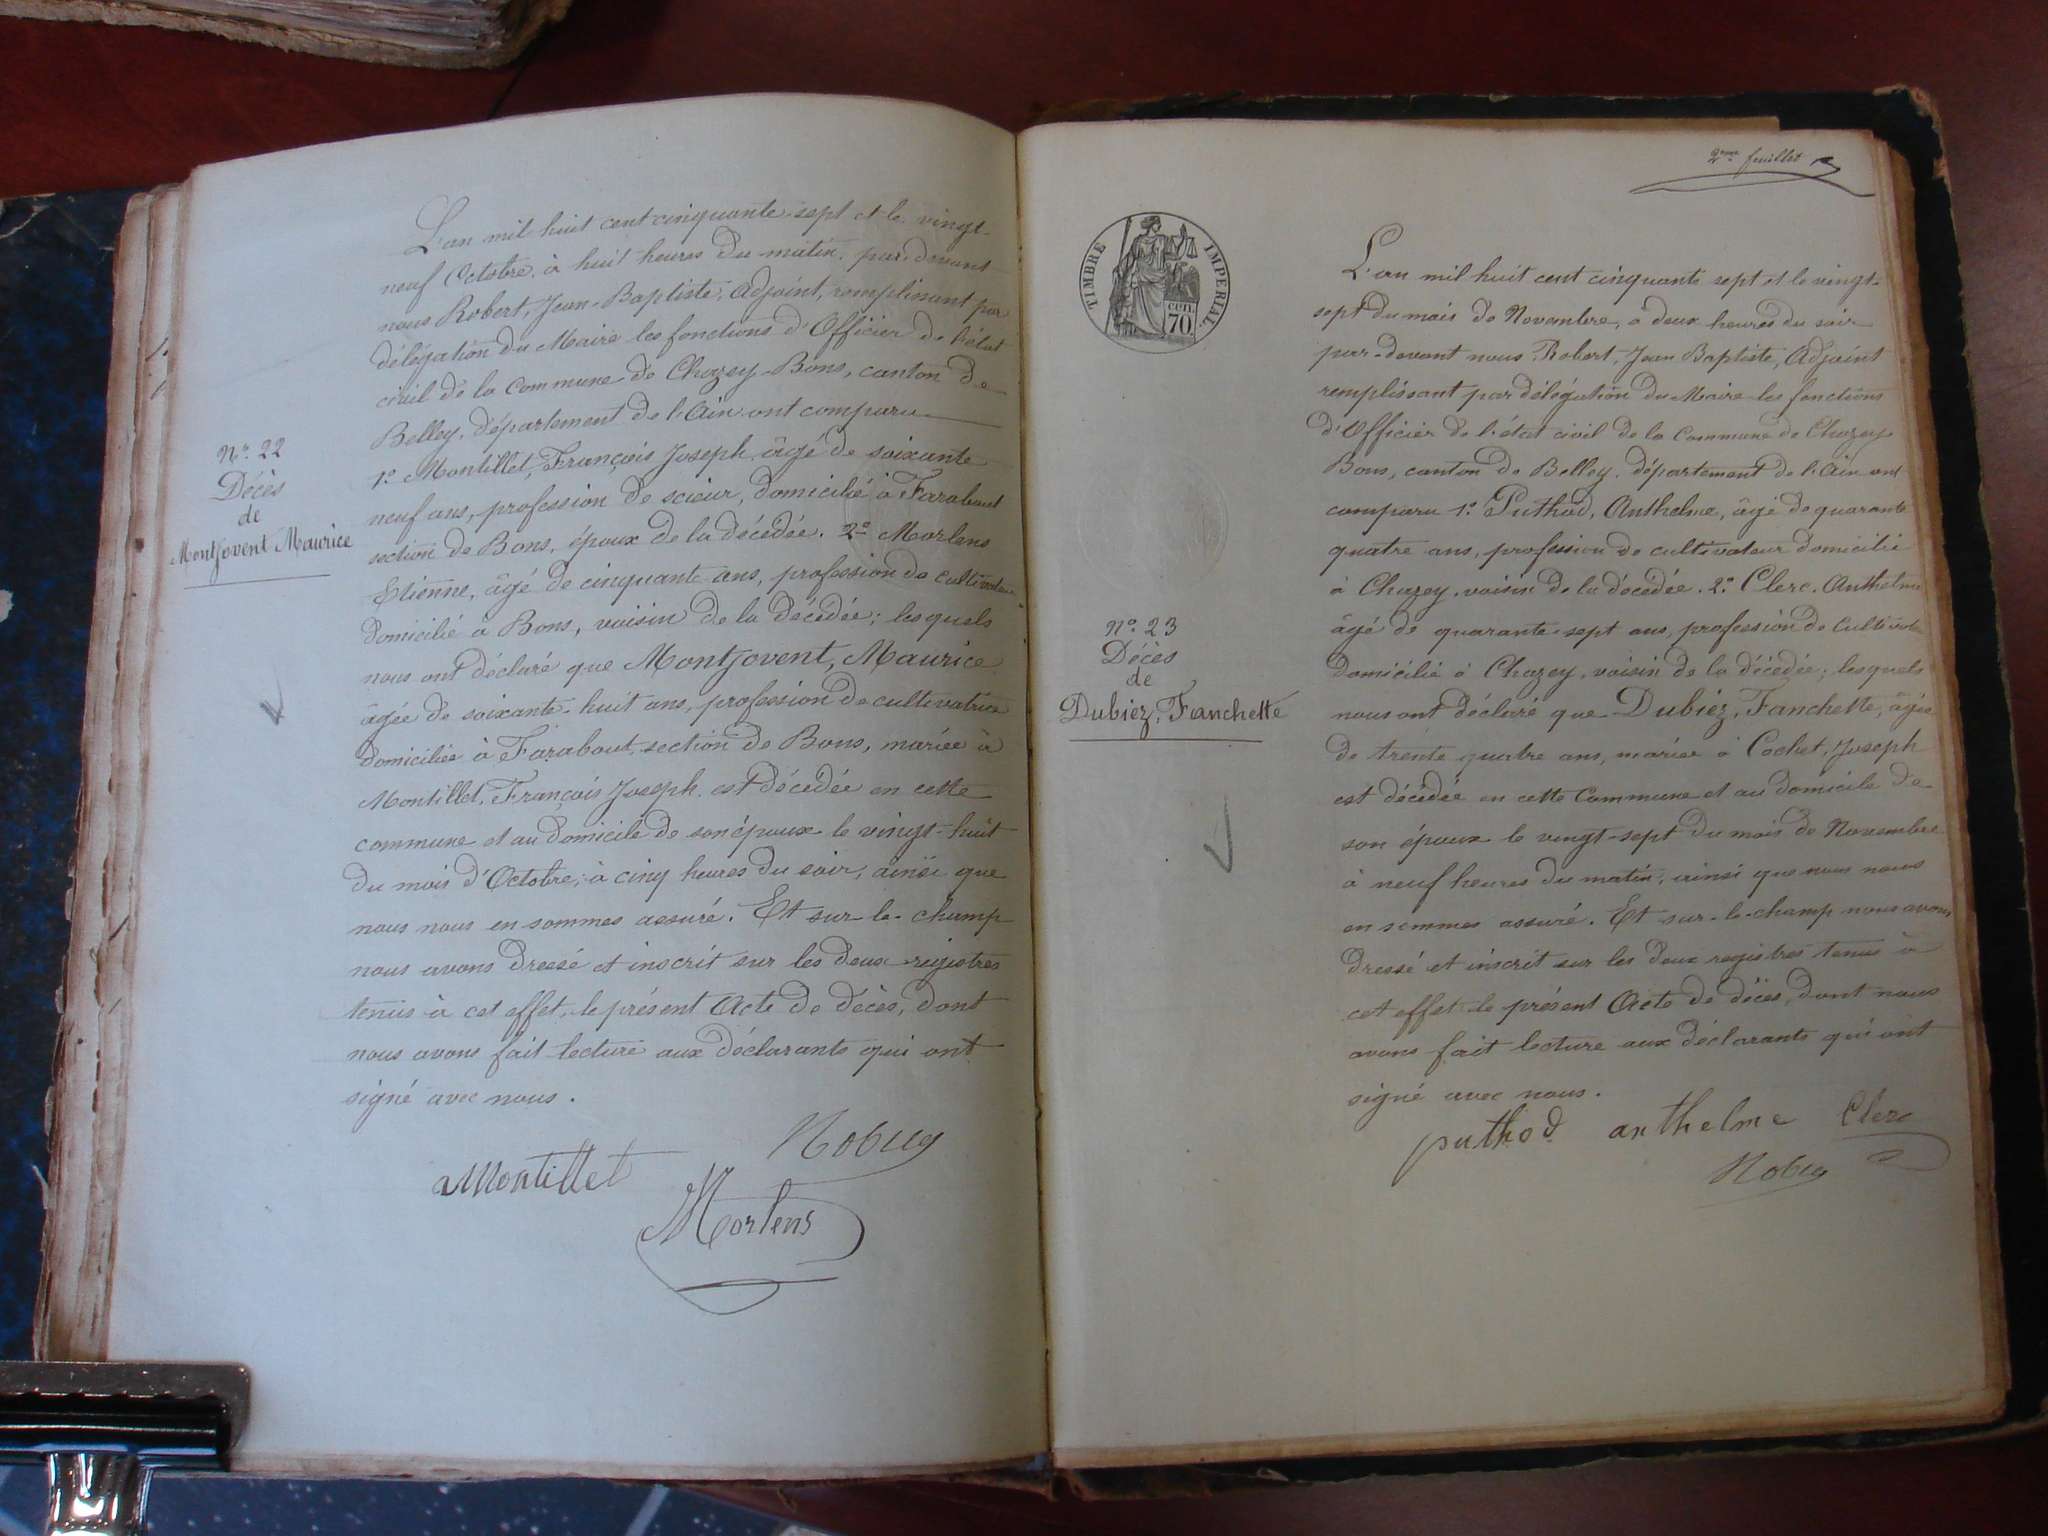 L'an mil huit cent cinquante-sept et le vingt-
neuf Octobre, à huit heures du matin, par-devant
nous Robert, Jean-Baptiste, Adjoint, remplissant par
délégation du Maire les fonctions d'Officier de l'état
civil de la Commune de Chazey-Bons, canton de
Belley, département de l'Ain ont comparu
1º Montillet, François Joseph, âgé de soixante
neuf ans, profession de scieur, domicilié à Farabout
section de Bons, époux de la décédée. 2º Morlens
Etienne, âgé de cinquante ans, profession de cultivateur
domicilié à Bons, voisin de la décédée; lesquels
nous ont déclaré que Montjovent, Maurice
âgée de soixante-huit ans, profession de cultivatrice
domiciliée à Farabout, section de Bons, mariée à
Montillet, François Joseph est décédée en cette
commune et au domicile de son époux le vingt-huit
du mois d'Octobre, à cinq heures du soir, ainsi que
nous nous en sommes assuré. Et sur-le-champ
nous avons dressé et inscrit sur les deux registres
tenus à cet effet, le présent Acte de décès, dont
nous avons fait lecture aux déclarants qui ont
signé avec nous.
Nº 22
Décès
de
Montjovent Maurice
Montillet
Morlens
2eme feuillet
TIMBRE IMPERIAL
CENT.
70
L'an mil huit cent cinquante sept et le vingt-
sept du mois de Novembre, à deux heures du soir
par-devant nous Robert, Jean Baptiste, Adjoint
remplissant par délégation du Maire les fonctions
d'Officier de l'état civil de la Commune de Chazey
Bons, canton de Belley, département de l'Ain ont
comparu 1º Puthod, Anthelme, âgé de quarante
quatre ans, profession de cultivateur domicilié
à Chazey, voisin de la décédée. 2º Clerc, Anthelme
âgé de quarante-sept ans, profession de cultivateur
domicilié à Chazey, voisin de la décédée; lesquels
nous ont déclaré que Dubiez, Fanchette, âgée
de trente quatre ans, mariée à Cochet, Joseph
est décédée en cette Commune et au domicile de
son époux le vingt-sept du mois de Novembre
à neuf heures du matin, ainsi que nous nous
en sommes assuré. Et sur-le-champ nous avons
dressé et inscrit sur les deux registres tenus à
cet effet le présent Acte de décès, dont nous
avons fait lecture aux déclarants qui ont
signé avec nous.
Nº 23
Décès
de
Dubiez, Fanchette
puthod anthelme Clerc